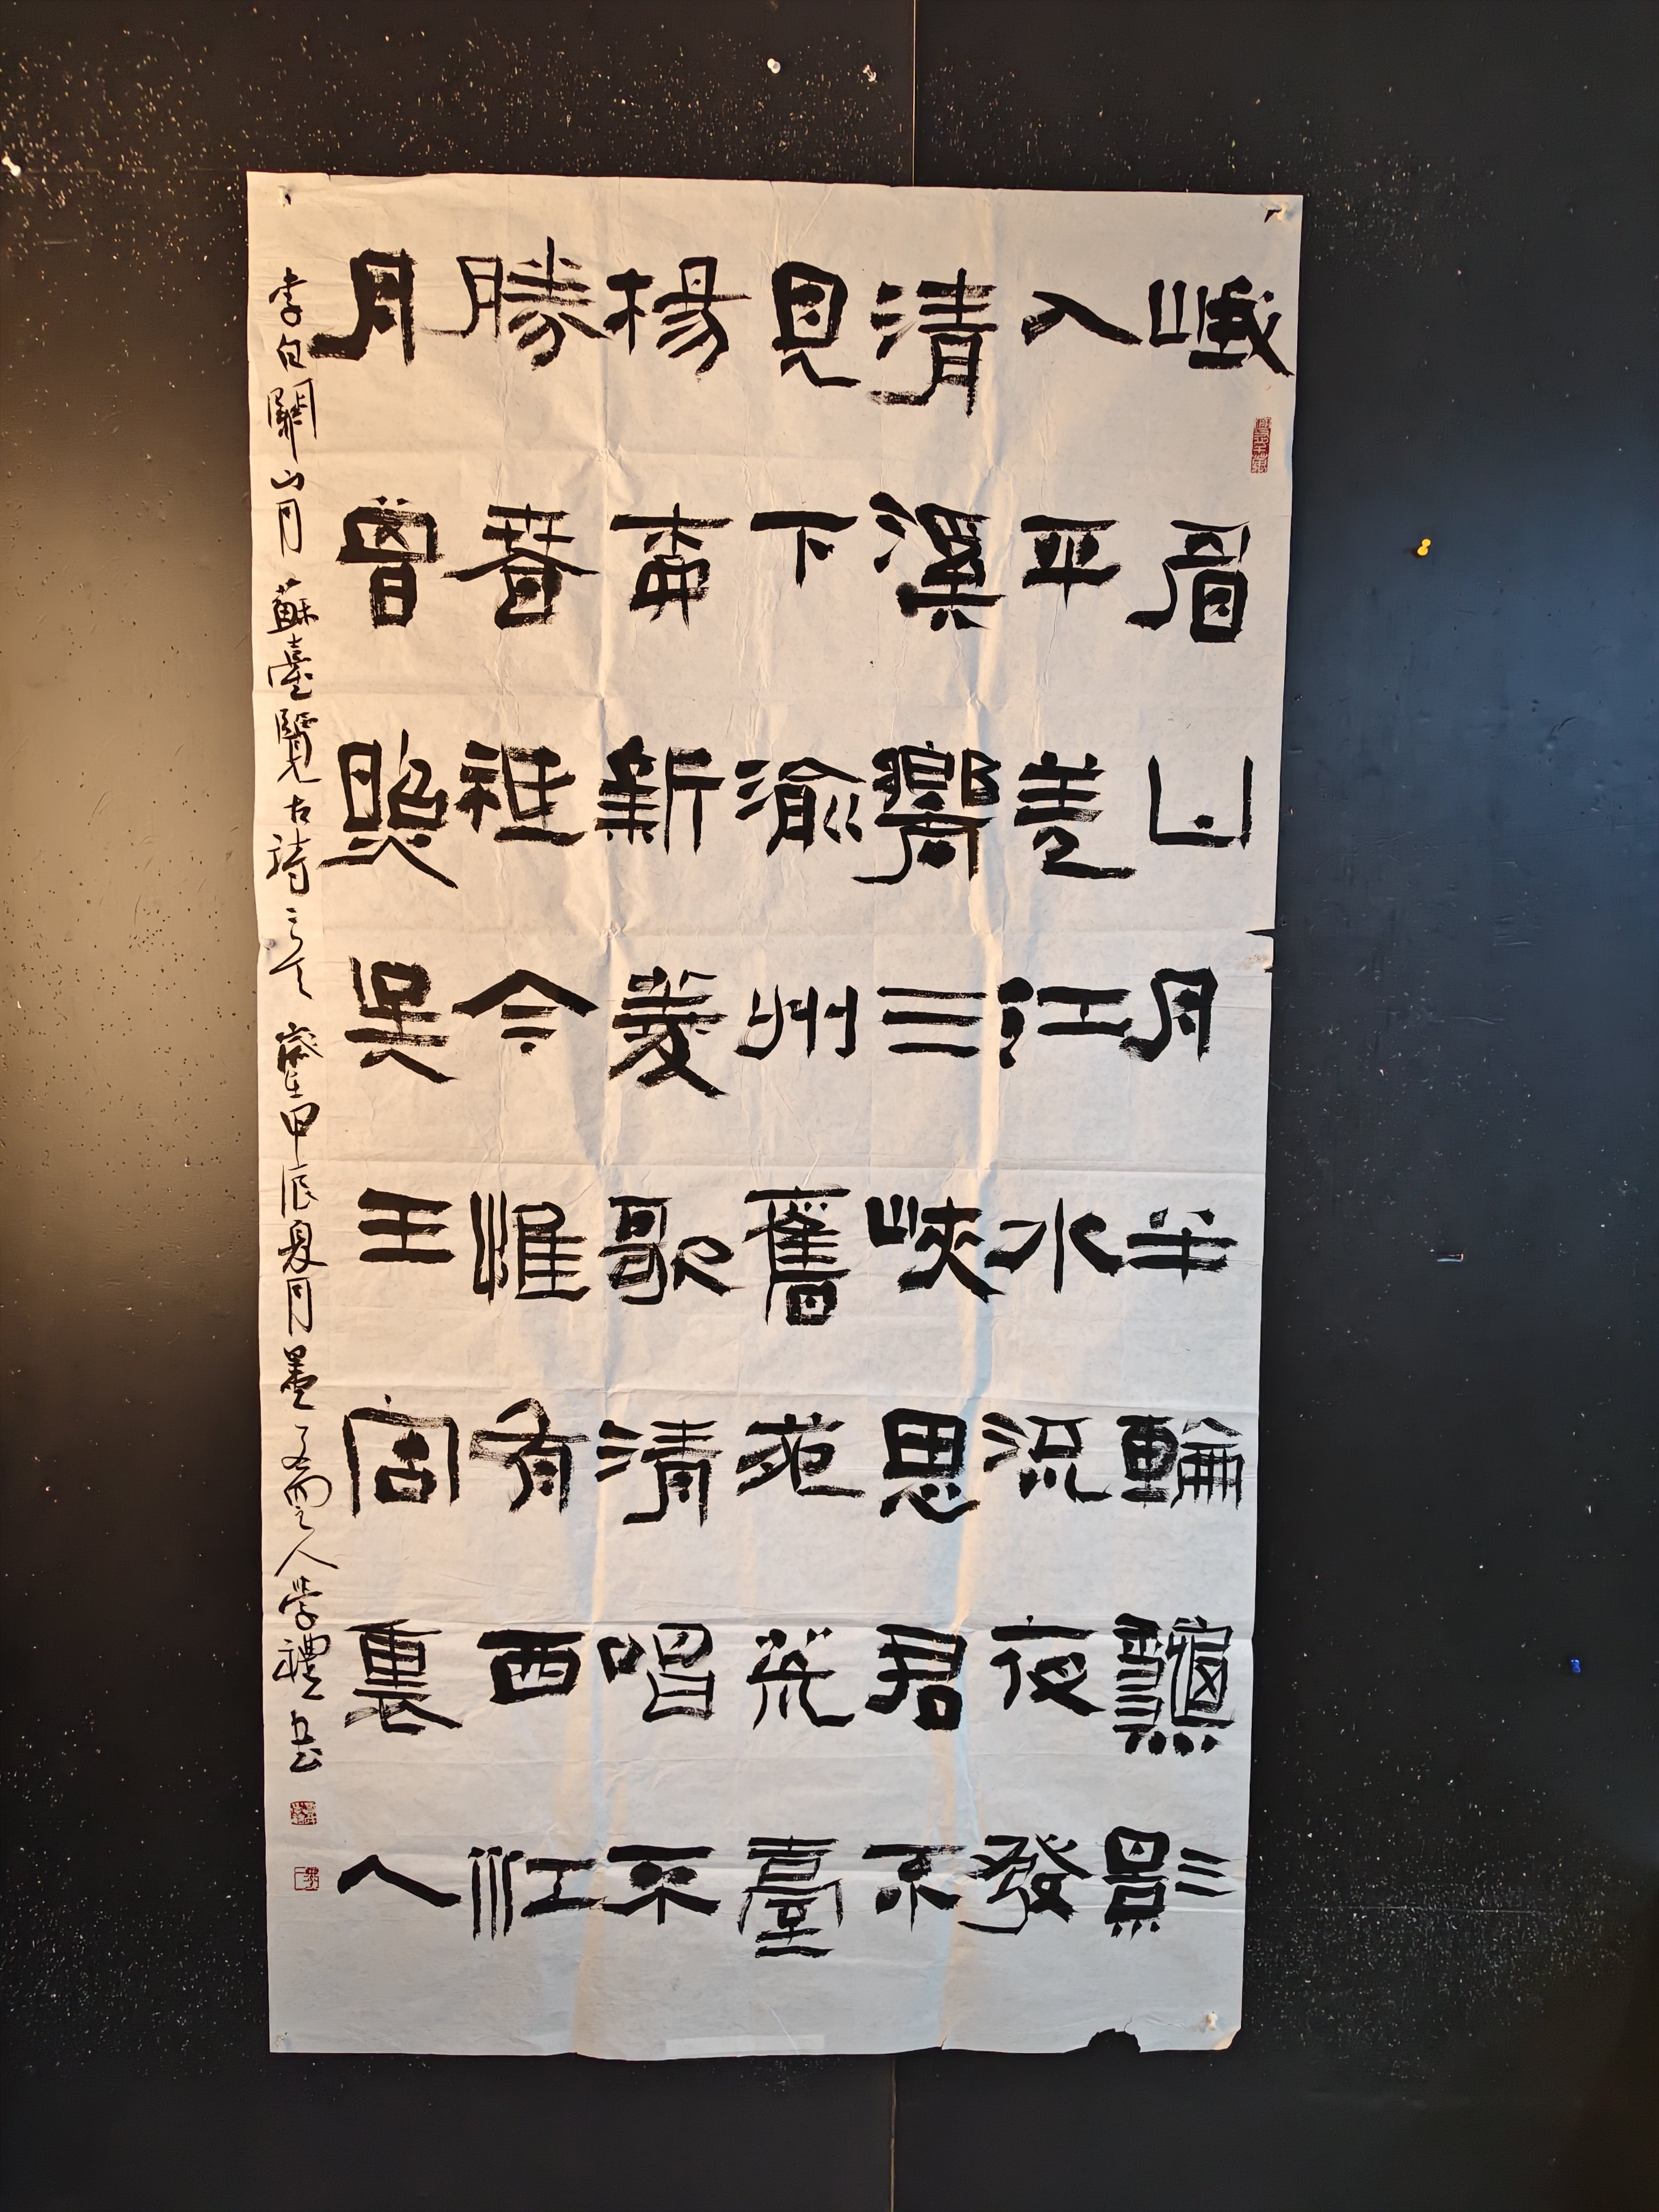 峨眉山月半輪龝影
入平羌江水流夜發
清溪嚮三峽思君不
見下渝州舊苑荒臺
楊柳新菱歌清唱不
勝春祗今惟有西江
月曾照吳王宮裏人
李白關山月 蘇臺覽古詩二首 歲在甲辰夏月墨人學禮書